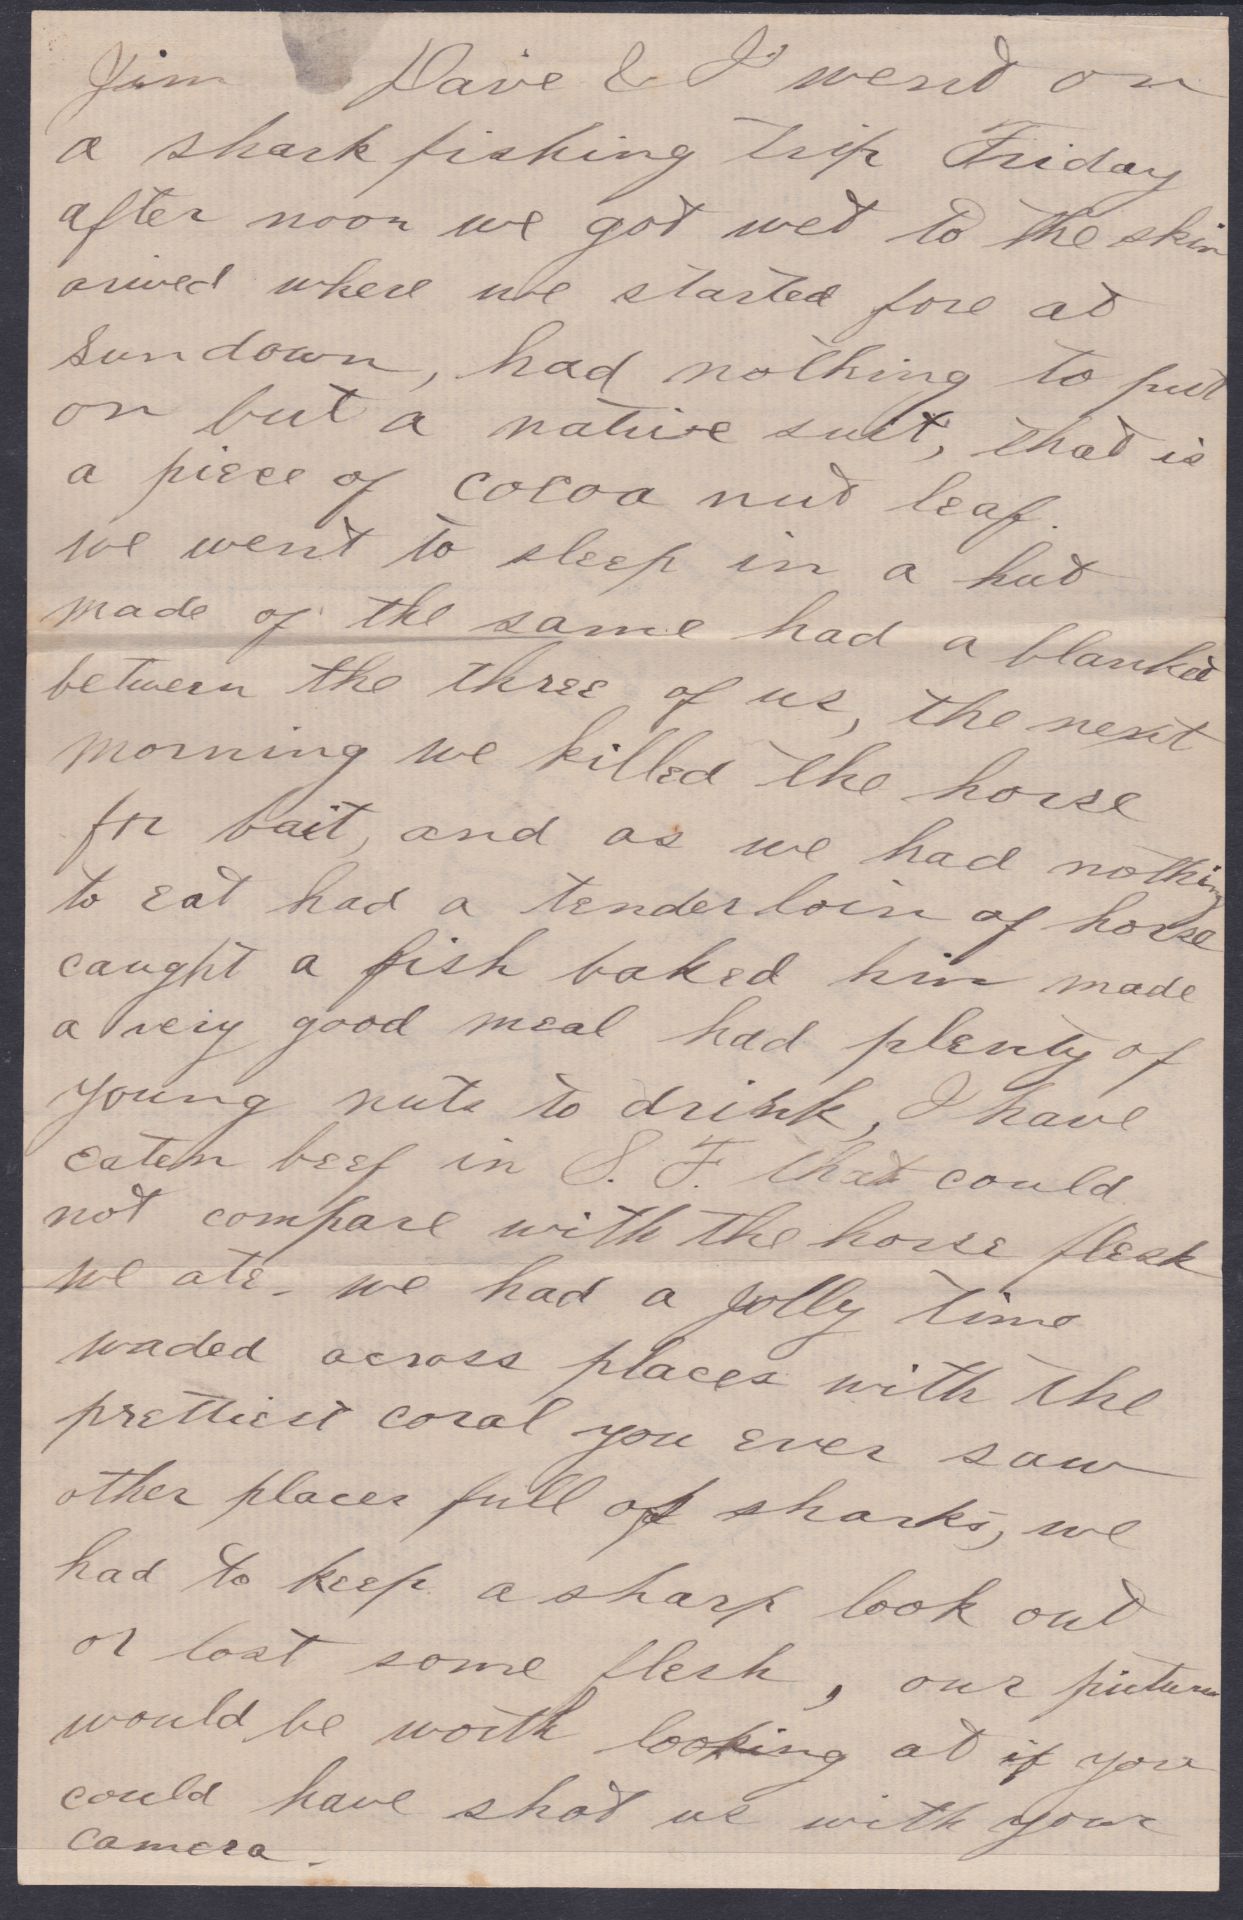 Jim Dave & I went on
a shark fishing trip Friday
after noon we got wet to the skin
arived where we started fore at
sundown, had nothing to put
on but a native suit, that is
a piece of cocoa nut leaf.
we went to sleep in a hut
made of the same had a blanket
between the three of us, the next
morning we killed the horse
for bait, and as we had nothing
to eat had a tenderloin of horse
caught a fish baked him made
a very good meal had plenty of
young nuts to drink, I have
eaten beef in S. F. that could
not compare with the horse flesh
we ate. we had a jolly time
waded across places with the
prettiest coral you ever saw
other places full of sharks, we
had to keep a sharp look out
or lost some flesh, our picture
would be worth looking at if you
could have shot us with your
camera.